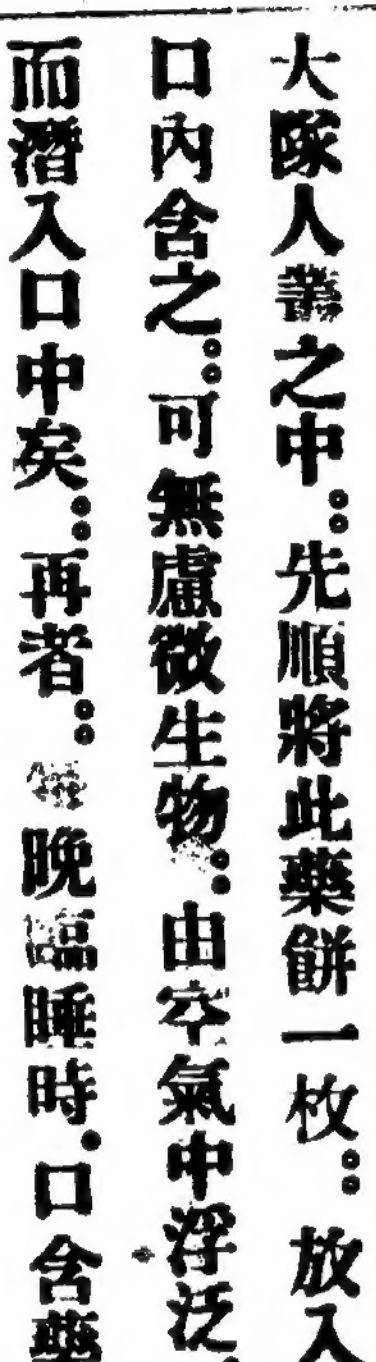 大隊人叢之中。先順將此藥餅一枚。放入
口內含之。可無慮微生物。由空氣中浮泛。
而潛入口中矣。再者。晚臨睡時。口含藥